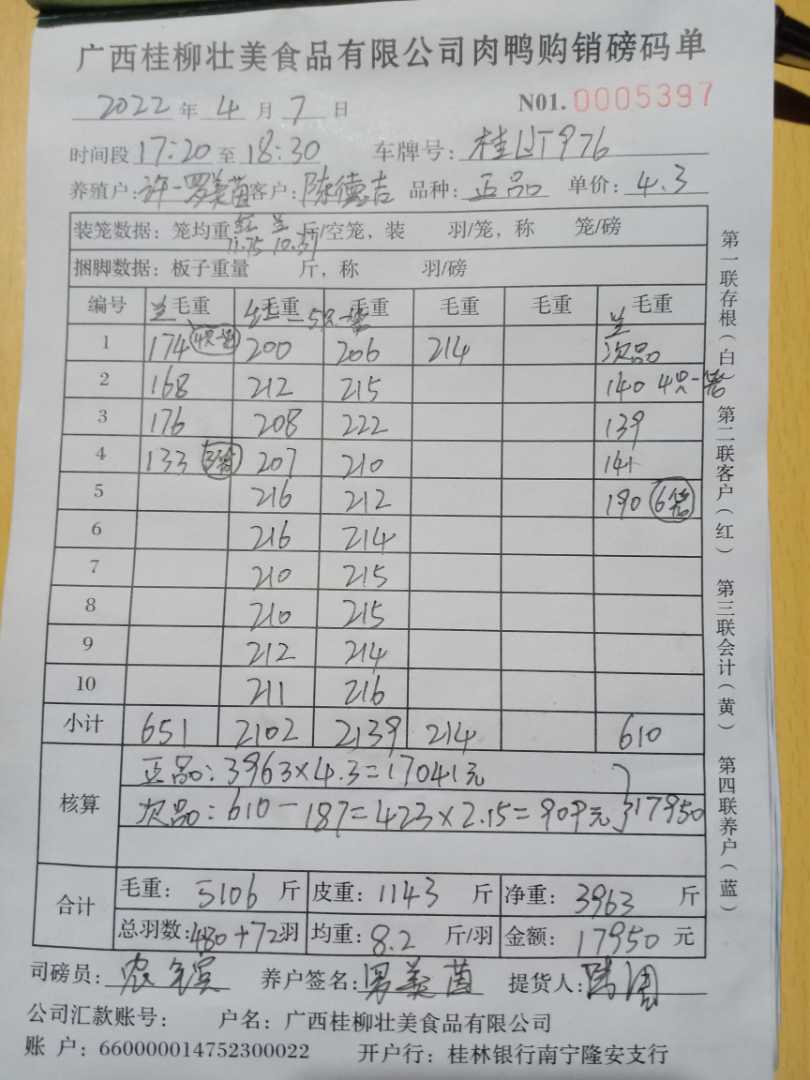 广西桂柳壮美食品有限公司肉鸭购销磅码单
2022年4月7日 N01.0005397
时间段17:20至18:30 车牌号：桂
养殖户：许一罗美茵 客户：陈德吉 品种：正品 单价：4.3
装笼数据：笼均重 红 兰 斤/空笼，装 羽/笼，称 笼/磅
11.75 10.37
捆脚数据：板子重量 斤，称 羽/磅
编号 兰毛重 红毛重 5只一笼 毛重 毛重 毛重 毛重 兰
1 174 200 206 214 次品
2 168 212 215 140 4只一笼
3 176 208 222 139
4 133 3笼 207 210 141
5 216 212 190 6笼
6 216 214
7 210 215
8 210 215
9 212 214
10 211 216
小计 651 2102 2139 214 610
核算 正品：3963×4.3=17041元
次品：610-187=423×2.15=909元 }17950
合计 毛重：5106斤 皮重：1143斤 净重：3963斤
总羽数：480+72羽 均重：8.2斤/羽 金额：17950元
司磅员： 养户签名：罗美茵 提货人：
公司汇款账号： 户名：广西桂柳壮美食品有限公司
账 户：660000014752300022 开户行：桂林银行南宁隆安支行
第一联存根（白） 第二联客户（红） 第三联会计（黄） 第四联养户（蓝）